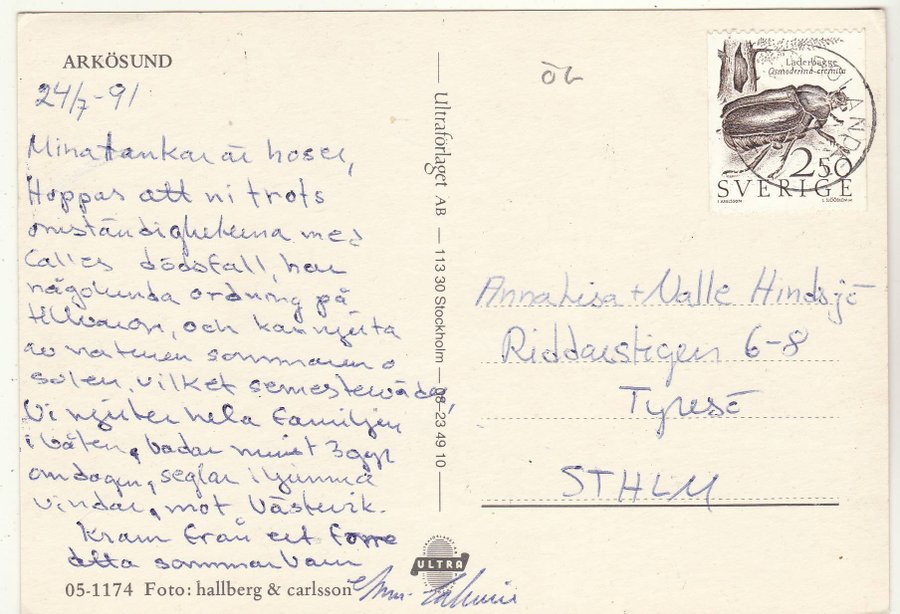 ARKÖSUND
24/7-91
Mina tankar är hos er,
Hoppas att ni trots
omständigheterna med
Calles dödsfall, har
någolunda ordning på
tillvaron, och kan njuta
av naturen sommaren o
solen, vilket semesterväder,
Vi njuter hela familjen
i båten, badar minst 3ggr
om dagen, seglar i ljumma
vindar, mot Västervik.
Kram från ett förre
detta sommarbarn
05-1174 Foto: hallberg & carlsson
Ultraförlaget AB — 113 30 Stockholm — 08-23 49 10
ULTRA
ÖL
Läderbagge
Osmoderma eremita
2.50
SVERIGE
Anna Lisa + Nalle Hindsjö
Riddarstigen 6-8
Tyresö
STHLM